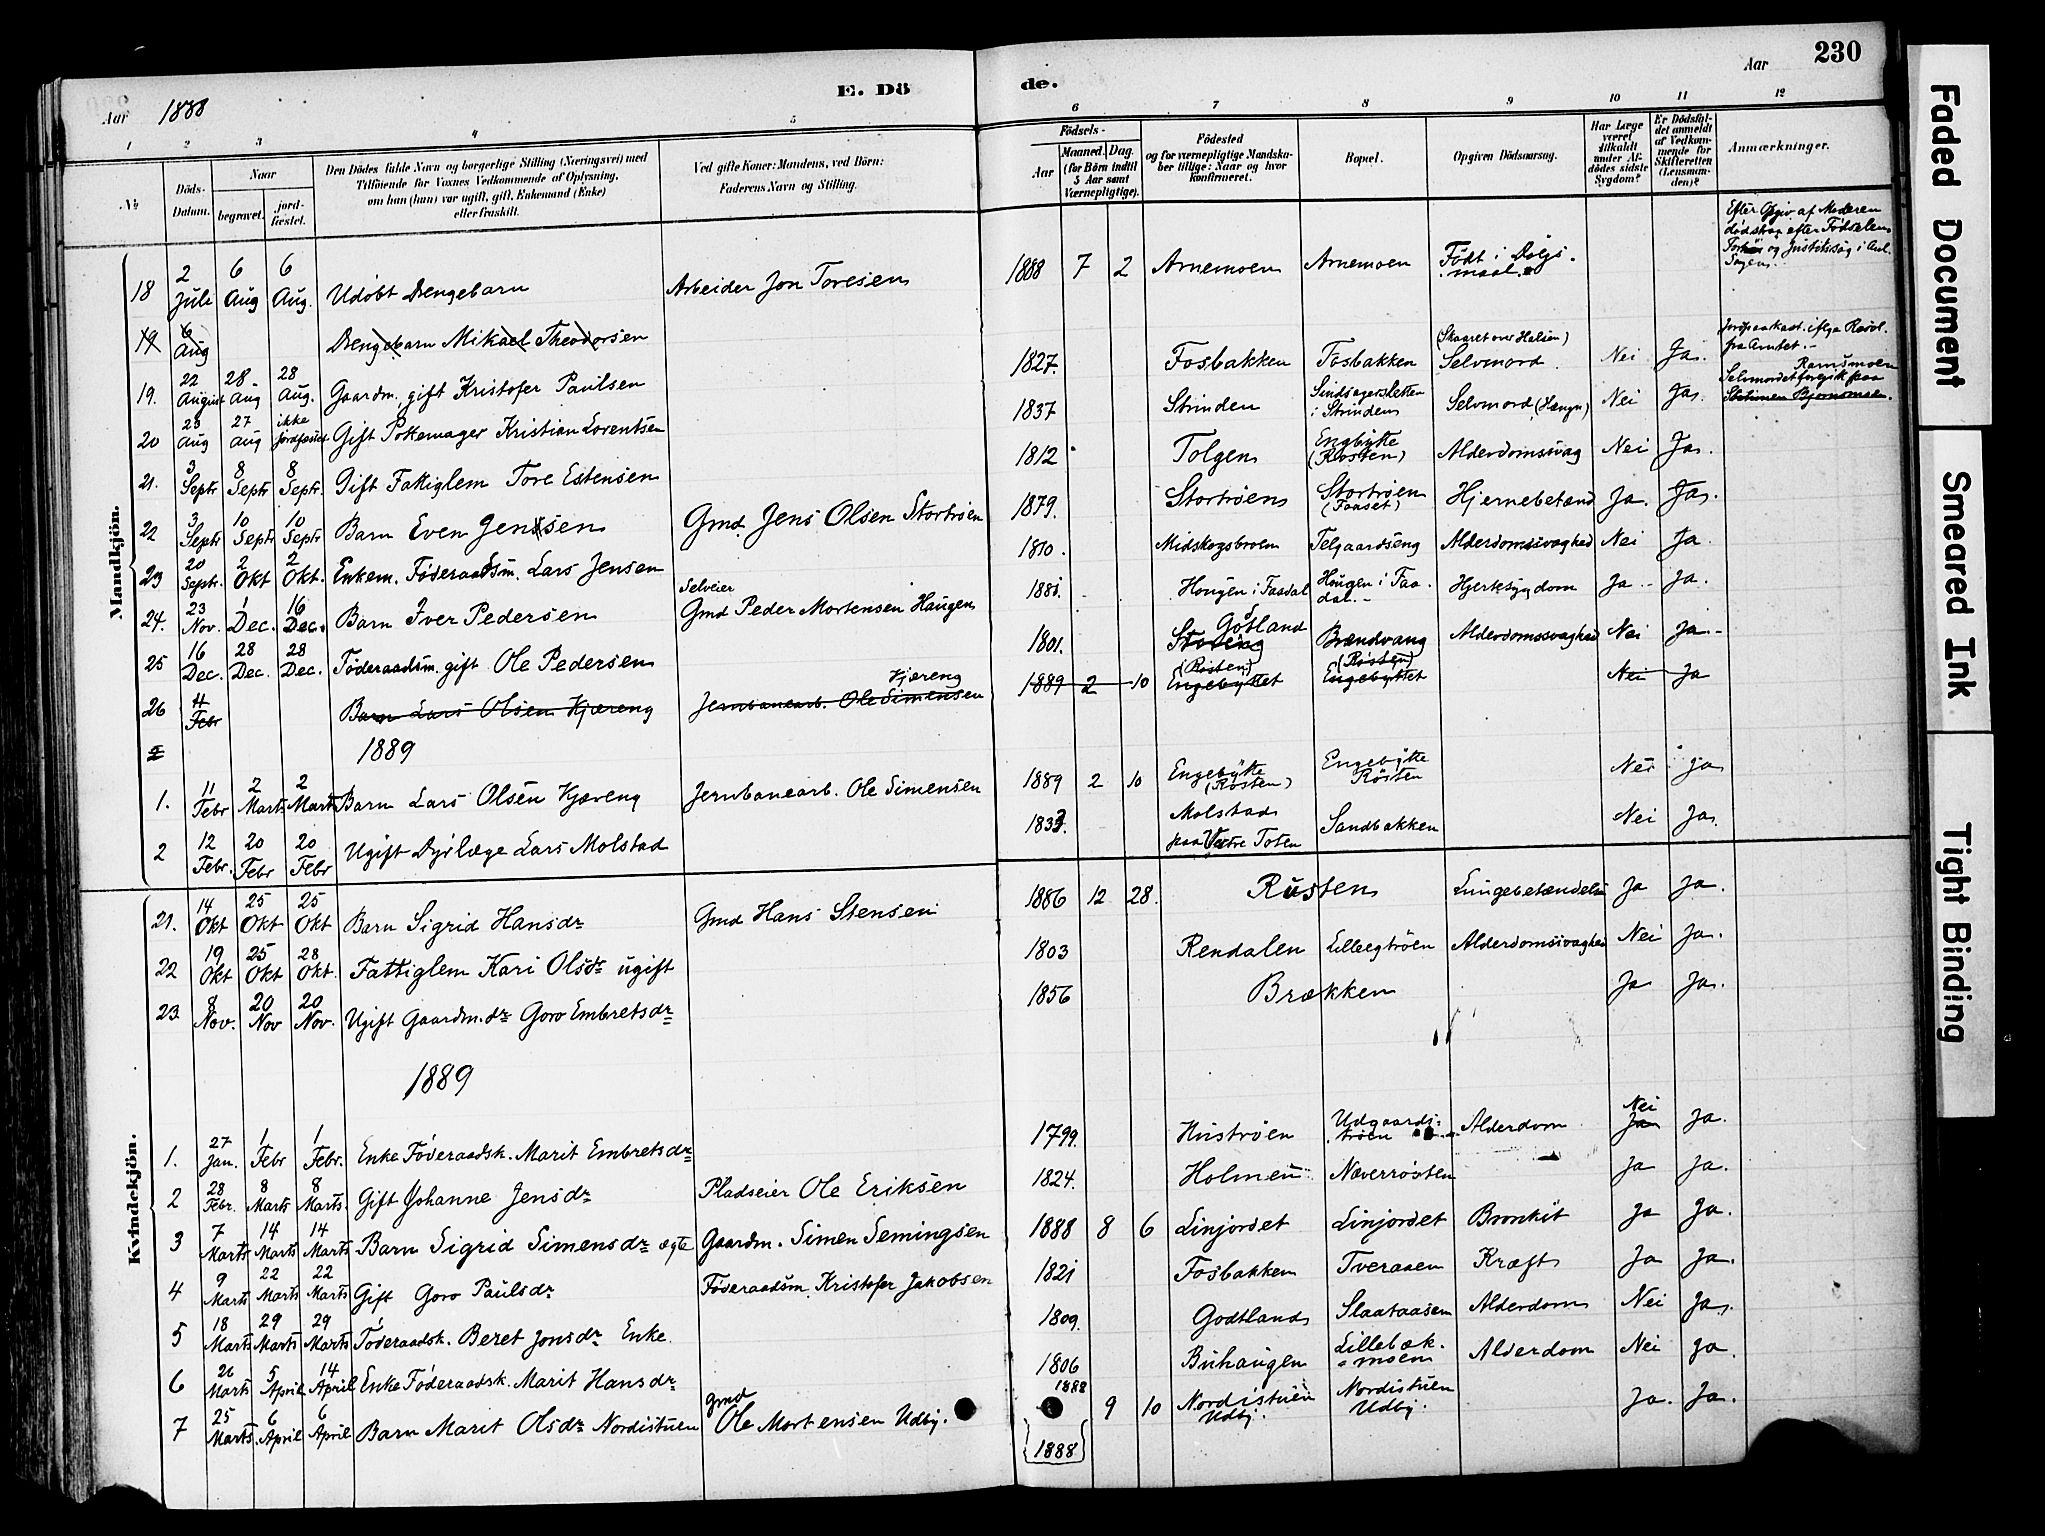 230
Aar 1888
E. Dö
de.
Aar
1 2 3 4 5 6 7 8 9 10 11 12
No
Döds-Datum.
Naar
begravet.
jord-fæstet.
Den Dödes fulde Navn og borgerlige Stilling (Næringsvei) med
Tilföiende for Voxnes Vedkommende af Oplysning,
om han (hun) var ugift, gift, Enkemand (Enke)
eller fraskilt.
Ved gifte Koner: Mandens, ved Börn:
Faderens Navn og Stilling.
Födsels-
Aar
Maaned. Dag.
(for Börn indtil
5 Aar samt
Værnepligtige).
Födested
og for værnepligtige Mandska-
ber tillige: Naar og hvor
konfirmeret.
Bopæl.
Opgiven Dödsaarsag.
Har Læge
været
tilkaldt
under Af-
dödes sidste
Sygdom?
Er Dödsfal-
det anmeldt
af Vedkom-
mende for
Skifteretten
(Lensman-
den)?
Anmærkninger.
Mandkjön.
18 2 Juli 6 Aug 6 Aug. Udøbt Drengebarn Arbeider Jon Toresen 1888 7 2 Arnemoen Arnemoen Født i Dølgsmaal
Efter Opgiv. af Moderen
død strax efter Fødselen
19 6 Aug Drengebarn Mikael Theodorsen
19. 22 August 28 Aug 28 Aug. Gaardm. gift Kristofer Paulsen 1827. Fosbakken Fosbakken (Skaaret over Halsen) Selvmord Nei Ja.
20 23 Aug 27 Aug ikke jordfæstet Gift Pottemager Kristian Lorentsen 1837 Strinden Sindsygeasyl i Strinden Selvmord (Hængn) Nei Ja.
Selvmordet foregik paa
21. 3 Septr 8 Septr 8 Septr. Gift Fattiglem Tore Estensen 1812 Tolgen Engbytte (Røsten) Alderdomssvag Nei Ja.
22 3 Septr 10 Septr 10 Septr Barn Even Jenssen Gmd. Jens Olsen Stortrøen 1879. Stortrøen Stortrøen (Faaset) Hjernebetænd Ja. Ja.
23 20 Septr. 2 Okt 2 Okt. Enkem. Føderaadsm. Lars Jensen 1810. Midskogsbroen Telgaardseng Alderdomssvaghed Nei Ja.
24. 23 Nov. 1 Dec. 16 Dec. Barn Iver Pedersen Selveier Gmd Peder Mortensen Haugen Hougen i Faadal Hougen i Faadal. Hjertesygdom Ja Ja.
25 16 Dec. 28 Dec. 28 Dec. Føderaadsm. gift Ole Pedersen 1801. Gotland Brændvang Alderdomssvaghed Nei Ja
26 Febr Barn Lars Olsen Kjæreng Jernbanearb. Ole Simensen Kjæreng 1889 2 10 (Røsten) Engebyttet (Røsten) Engebyttet Nei Ja
1889
1. 11 Febr 2 Marts 2 Marts Barn Lars Olsen Kjæreng Jernbanearb. Ole Simensen 1889 2 10 Engebytte (Røsten) Engebytte Røsten Nei Ja
2 12 Febr. 20 Febr 20 Febr Ugift Dyrlæge Lars Molstad 1833. Molstad paa Vestre Toten Sandbakken Nei Ja.
Kvindekjön.
21. 14 Okt 25 Okt 25 Okt Barn Sigrid Hansdr Gmd Hans Stensen 1886 12 28. Rusten Lungebetændelse Ja Ja.
22 19 Okt 25 Okt 28 Okt. Fattiglem Kari Olsdr ugift 1803 Rendalen Lilleegtrøen Alderdomssvaghed Nei Ja.
23. 8 Nov. 20 Nov 20 Nov. Ugift Gaardm.dr Goro Embretsdr 1856 Brækken Ja Ja.
1889
1. 27 Jan. 1 Febr 1 Febr. Enke Føderaadsk. Marit Embretsdr 1799. Hustrøen Udgaardstrøen Alderdom Nei Ja Ja.
2 28 Febr. 8 Marts 8 Marts. Gift Johanne Jensdr Pladseier Ole Eriksen 1824. Holmen Næverrøsten Ja Ja.
3 7 Marts 14 Marts 14 Marts Barn Sigrid Simensdr ægte Gaardm. Simen Semingsen 1888 8 6 Linjordet Linjordet Bronkit Ja Ja.
4 9 Marts 22 Marts 22 Marts Gift Goro Paulsdr Føderaadsm. Kristofer Jakobsen 1821 Fosbakken Tveraaen Kræft Ja Ja.
5 18 Marts 29 Marts 29 Marts Føderaadsk. Beret Jonsdr Enke. 1809. Godtland Slaataasen Alderdom Nei Ja.
6 26 Marts 5 April 14 April Enke Føderaadsk. Marit Hansdr 1806 Buhaugen Lillebækmoen Alderdom Nei Ja.
7 25 Marts 6 April 6 April Barn Marit Olsdr Nordistuen Gmd Ole Mortensen Udby. 1888 9 10 Nordistuen Udby. Nordistuen Udby. Ja. Ja.
1888
Faded Document
Smeared Ink
Tight Binding